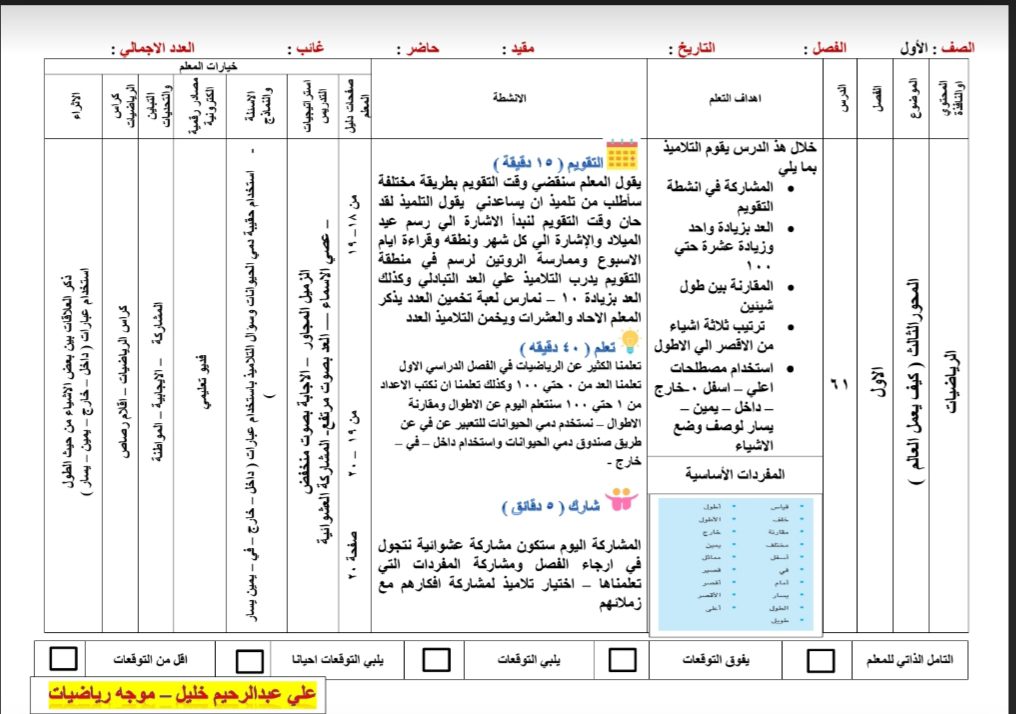 الصف : الأول
الفصل :
التاريخ :
مقيد :
حاضر :
غائب :
العدد الاجمالي :
المحتوي اوالنافذة
الموضوع
الفصل
الدرس
اهداف التعلم
الانشطة
خيارات المعلم
صفحات دليل المعلم
استراتيجيات التدريس
الاسئلة والنماذج
مصادر رقمية الكترونية
التباين والتحديات
كراس الرياضيات
الاثراء
الرياضيات
المحور الثالث ( كيف يعمل العالم )
الاول
٦١
خلال هذ الدرس يقوم التلاميذ
بما يلي
• المشاركة في انشطة
التقويم
• العد بزيادة واحد
وزيادة عشرة حتي
١٠٠
• المقارنة بين طول
شيئين
• ترتيب ثلاثة اشياء
من الاقصر الي الاطول
• استخدام مصطلحات
اعلي – اسفل -خارج
– داخل – يمين –
يسار لوصف وضع
الاشياء
المفردات الأساسية
قياس
خلف
مقارنة
مختلف
أسفل
في
أمام
يسار
الطول
طويل
أطول
الأطول
خارج
يمين
مماثل
قصير
أقصر
الأقصر
أعلى
التقويم ( ١٥ دقيقة )
يقول المعلم سنقضي وقت التقويم بطريقة مختلفة
سأطلب من تلميذ ان يساعدني يقول التلميذ لقد
حان وقت التقويم لنبدأ الاشارة الي رسم عيد
الميلاد والإشارة الي كل شهر ونطقه وقراءة ايام
الاسبوع وممارسة الروتين لرسم في منطقة
التقويم يدرب التلاميذ علي العد التبادلي وكذلك
العد بزيادة ١٠ – نمارس لعبة تخمين العدد يذكر
المعلم الاحاد والعشرات ويخمن التلاميذ العدد
تعلم ( ٤٠ دقيقه )
تعلمنا الكثير عن الرياضيات في الفصل الدراسي الاول
تعلمنا العد من ٠ حتي ١٠٠ وكذلك تعلمنا ان نكتب الاعداد
من ١ حتي ١٠٠ سنتعلم اليوم عن الاطوال ومقارنة
الاطوال – نستخدم دمي الحيوانات للتعبير عن في عن
طريق صندوق دمي الحيوانات واستخدام داخل – في –
خارج -
شارك ( ٥ دقائق )
المشاركة اليوم ستكون مشاركة عشوائية نتجول
في ارجاء الفصل ومشاركة المفردات التي
تعلمناها – اختيار تلاميذ لمشاركة افكارهم مع
زملائهم
من ١٨ – ١٩
من ١٩ – ٢٠
صفحة ٢٠
– عصي الاسماء – العد بصوت مرتفع- المشاركة العشوائية
الزميل المجاور – الاجابة بصوت منخفض
- استخدام حقيبة دمي الحيوانات وسوال التلاميذ باستخدام عبارات ( داخل – خارج – في – يمين يسار
)
فديو تعليمي
المشاركة – الايجابية – المواطنة
كراس الرياضيات – اقلام رصاص
استخدام عبارات ( داخل – خارج – يمين – يسار )
ذكر العلاقات بين بعض الاشياء من حيث الطول
التامل الذاتي للمعلم
يفوق التوقعات
يلبي التوقعات
يلبي التوقعات احيانا
اقل من التوقعات
علي عبدالرحيم خليل – موجه رياضيات